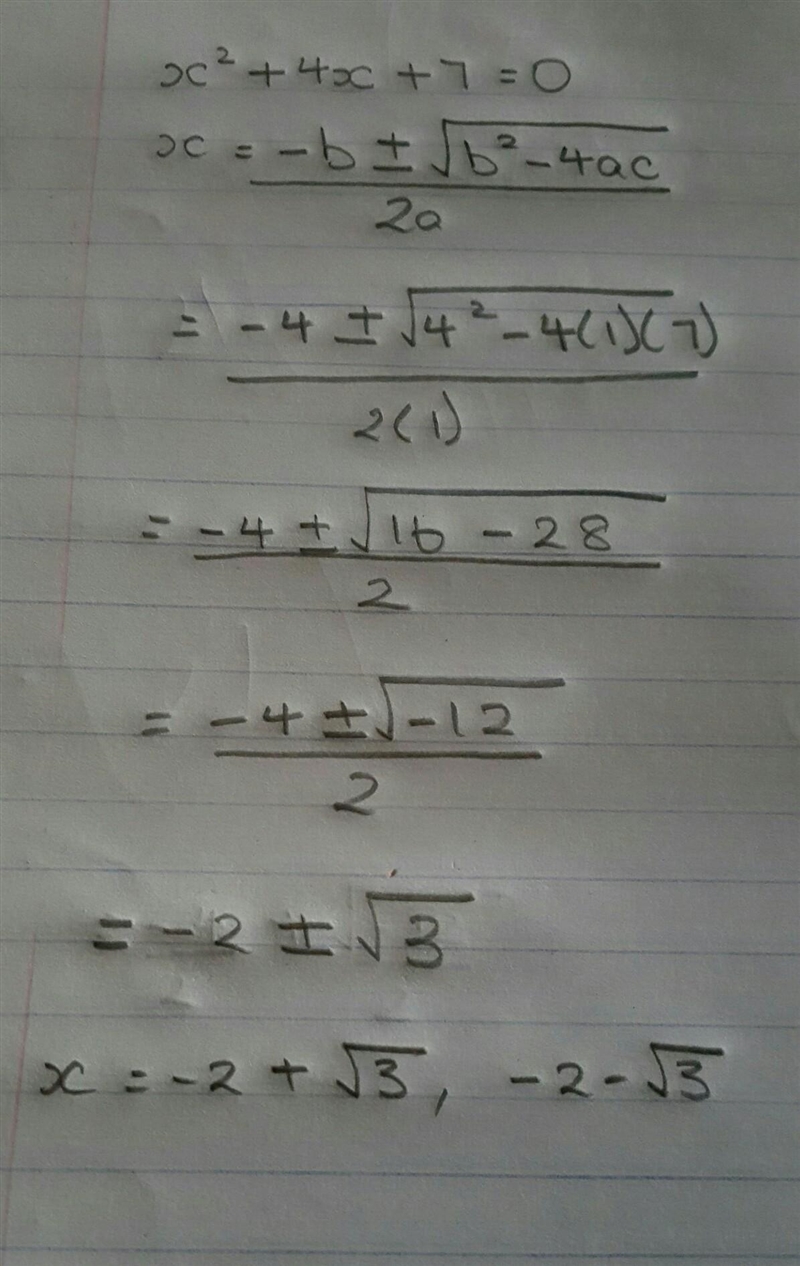 x² + 4x + 7 = 0
x = -b ± √b² - 4ac
2a
= -4 ± √4² - 4(1)(7)
2(1)
= -4 ± √16 - 28
2
= -4 ± √-12
2
= -2 ± √3
x = -2 + √3, -2 - √3